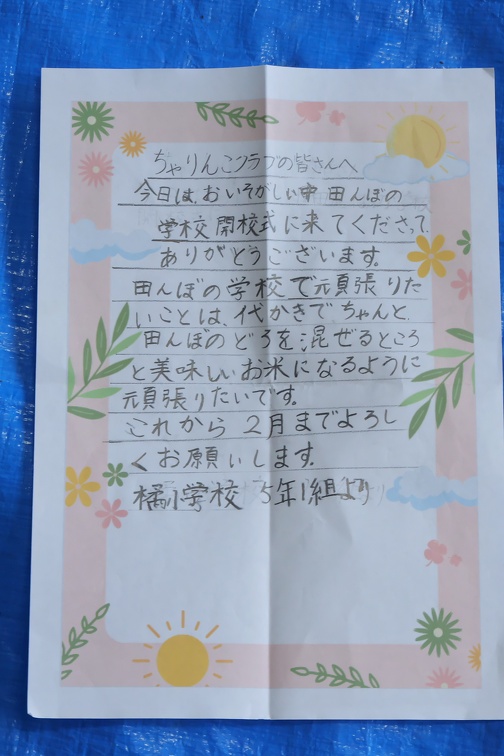 ちゃりんこクラブの皆さんへ
今日は、おいそがしい中 田んぼの
学校 開校式に来てくださって、
ありがとうございます。
田んぼの学校で頑張りた
いことは、代かきでちゃんと、
田んぼのどろを混ぜるところ
と美味しいお米になるように
頑張りたいです。
これから 2月までよろし
くお願いします。
橘小学校 5年1組より